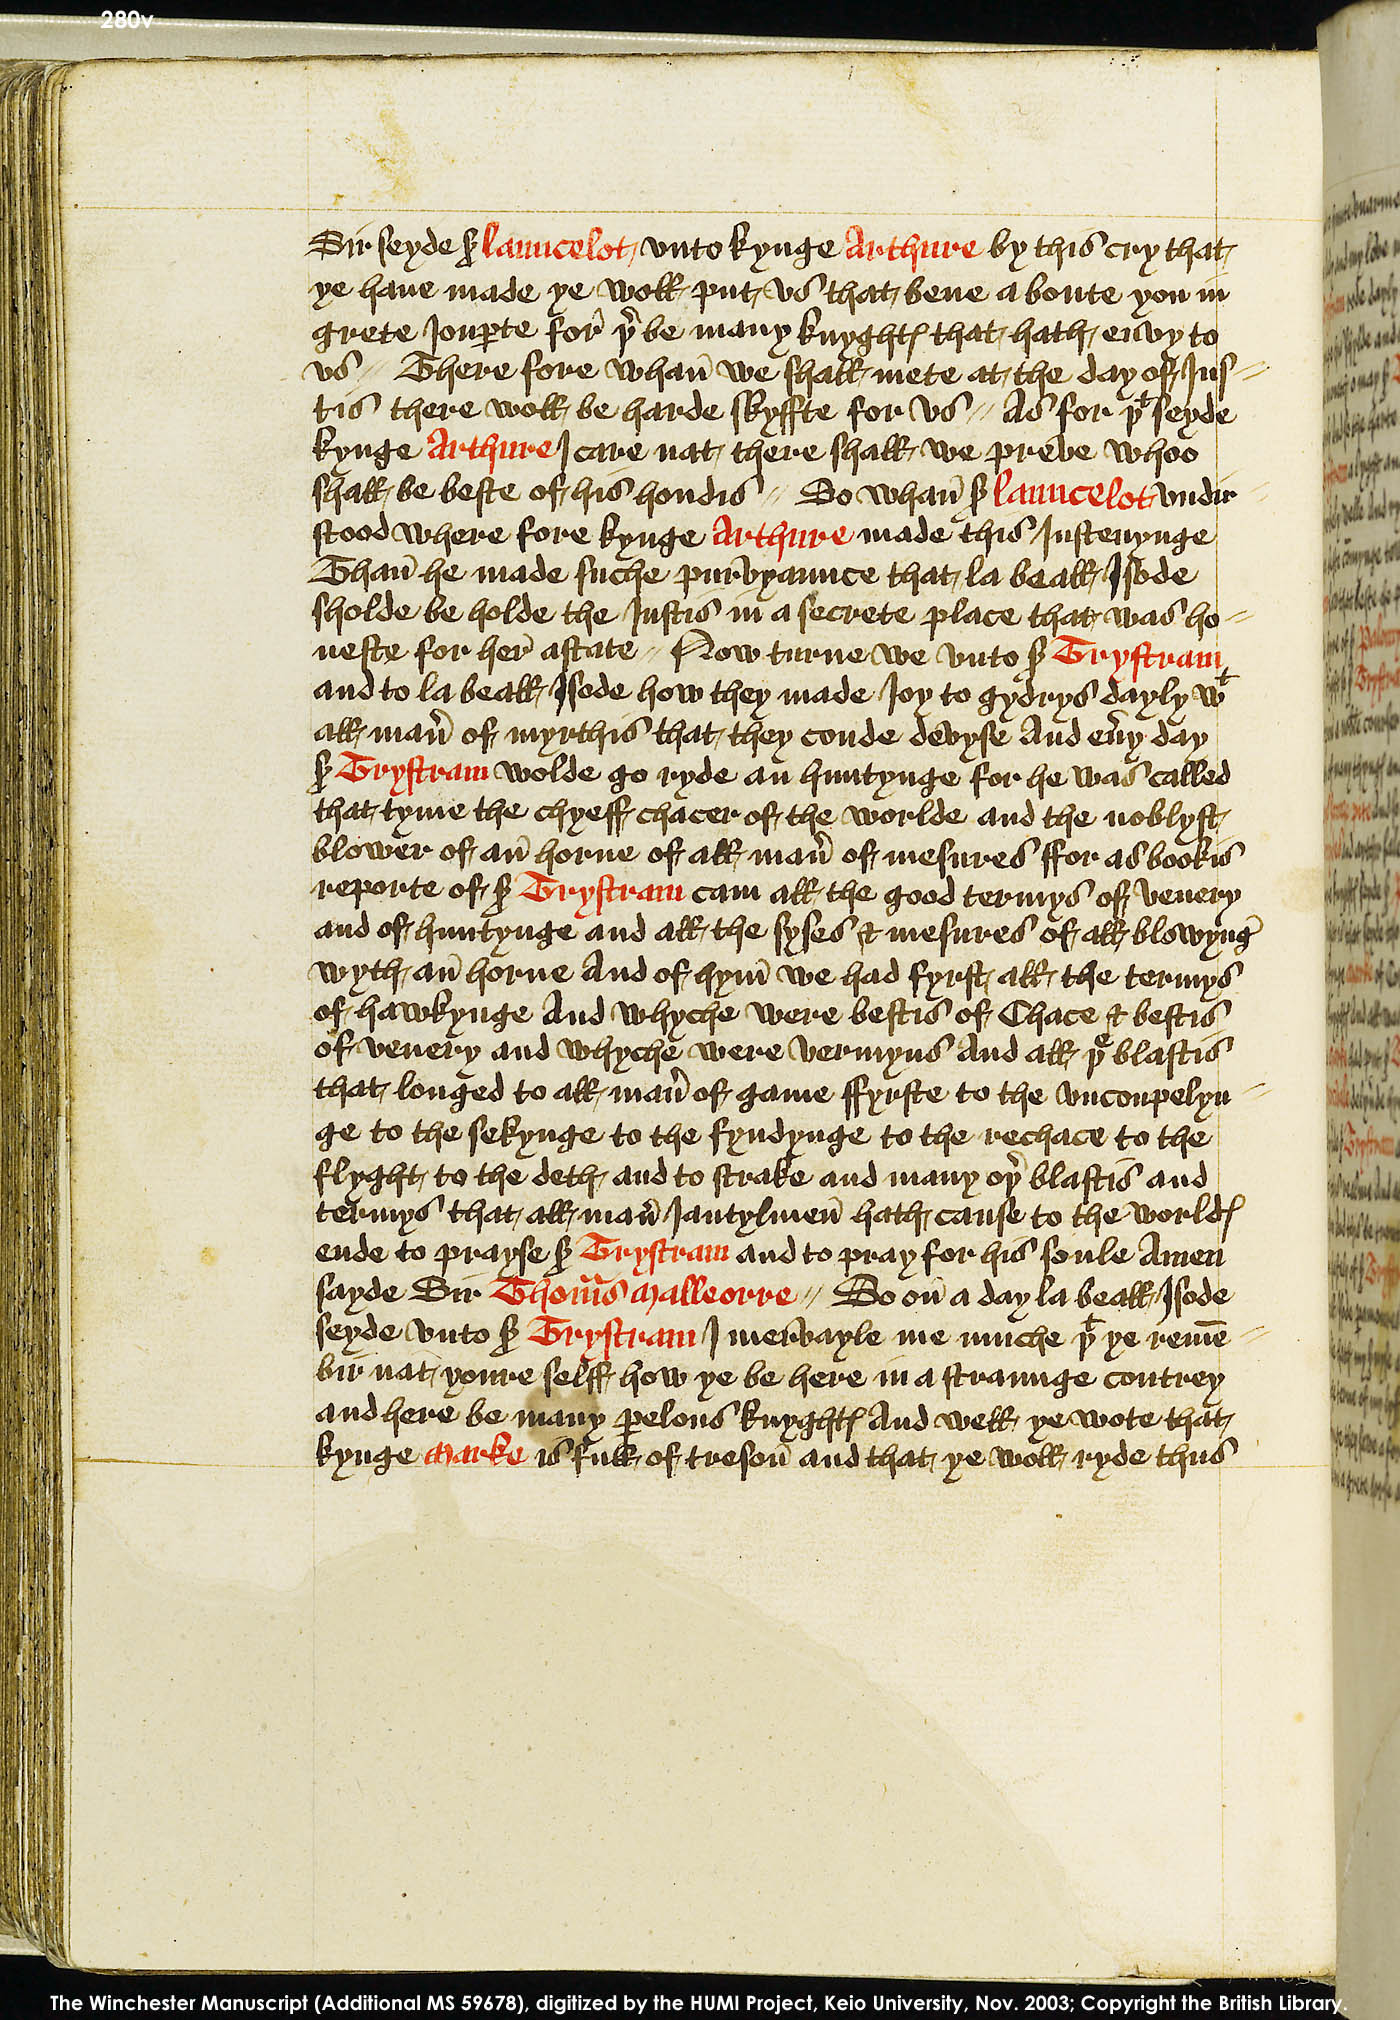 280v
Sir seyde ẜ launcelot vnto kynge Arthure by this cry that
ye haue made ye woll put vs that bene a boute you in
grete Joupte for þe be many knyghtꝭ that hath envy to
vs // There fore whan̄ we shall mete at the day of Jus=
tis there woll be harde skyffte for vs // As for þt seyde
kynge Arthure I care nat there shall we preve whoo
shall be beste of his hondis // So whan̄ ẜ launcelot vndir=
stood where fore kynge Arthure made this Justenynge
Than̄ he made suche purvyaunce that la beall Isode
sholde be holde the Justis in a secrete place that was ho=
neste for her astate // Now turne we vnto ẜ Trystram
and to la beall Isode how they made Joy to gydrys dayly wt
all man̄ of myrthis that they coude devyse And eūy day
ẜ Trystram wolde go ryde an huntynge for he was called
that tyme the chyeff chacer of the worlde and the noblyst
blower of an̄ horne of all man̄ of mesures ffor as bookis
reporte of ẜ Trystram cam all the good termys of venery
and of huntynge and all the syses & mesures of all blowynḡ
wyth an̄ horne And of hym̄ we had fyrst all the termys
of hawkynge And whyche were bestis of Chace & bestis
of venery and whyche were vermyns And all þe blastis
that longed to all man̄ of game ffyrste to the vncoupelyn=
ge to the sekynge to the fyndynge to the rechace to the
flyght to the deth and to strake and many oþ̄ blastis and
termys that all man̄ Jantylmen̄ hath cause to the worldꝭ
ende to prayse ẜ Trystram and to pray for his soule Amen
sayde Sir Thom̄s Malleorre // So on̄ a day la beall Isode
seyde vnto ẜ Trystram I mervayle me muche þt ye remē=
bir nat youre selff how ye be here in a straunge contrey
and here be many ꝑelous knyghtꝭ And well ye wote that
kynge Marke is full of treson̄ and that ye woll ryde thus
The Winchester Manuscript (Additional MS 59678), digitized by the HUMI Project, Keio University, Nov. 2003; Copyright the British Library.